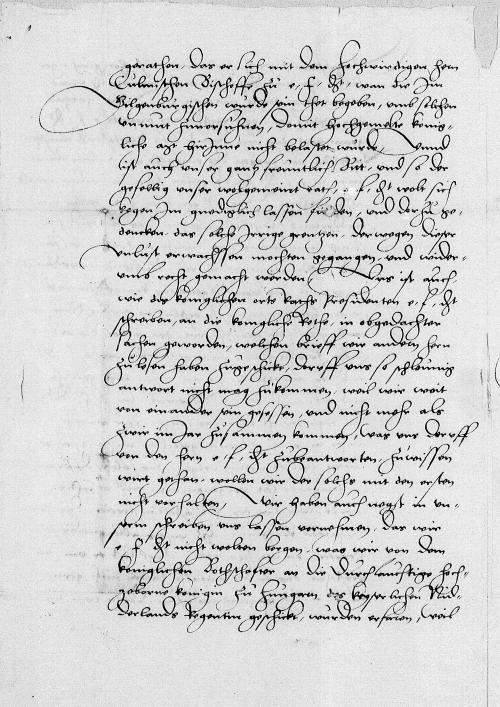 gerathen, das er sich mit dem hochwirdigen hern
Culmischen Bischoffe zu e. f. dt. wan die Im
Gilgenburgischen wurde sein thet begeben, umb solchen
unmut hinversuhnen, domit hochgemelte konig-
liche mt hirinne nicht belastet wurde, Unnd
ist auch unser gantz freuntlich bit, und so der
gefellig unser wolgemeint rath, e. f. dt wole sich
kegen Im gnediglich lassen finden, und dorzu ge-
dencken das solche Irrige grentzen derwegen dieser
unlust erwachssen mochten gegangen, und wider-
umb recht gemacht werden, Uns ist auch
wie des koniglichen orts Raths Presidenten e. f. dt
schreiben, an die konigliche Rethe, in obgedachter
sachen geworden, welchen brieff wir andern hern
zu lesen haben zugeschickt, doruff uns so schleunig
antwort nicht mag zukommen, weil wir weit
von einander sein gesessen, und nicht mehr als
zwir im Jar zusammen kommen, was uns doruff
von den hern e. f. dt zubeantworten, zuwissen
wirt gethan, wollen wir der solchs mit den ersten
nicht vorhalten, Wir haben auch negst in un-
serm schreiben uns lassen vornehmen, das wir
e. f. dt nicht wolten bergen, was wir von dem
koniglichen Bothschafter an die Durchlauchtige hoch-
geborne konigin zu Hungarn des keyserlichen Nid-
derlands Regentin geschickt, wurden erfaren, weil